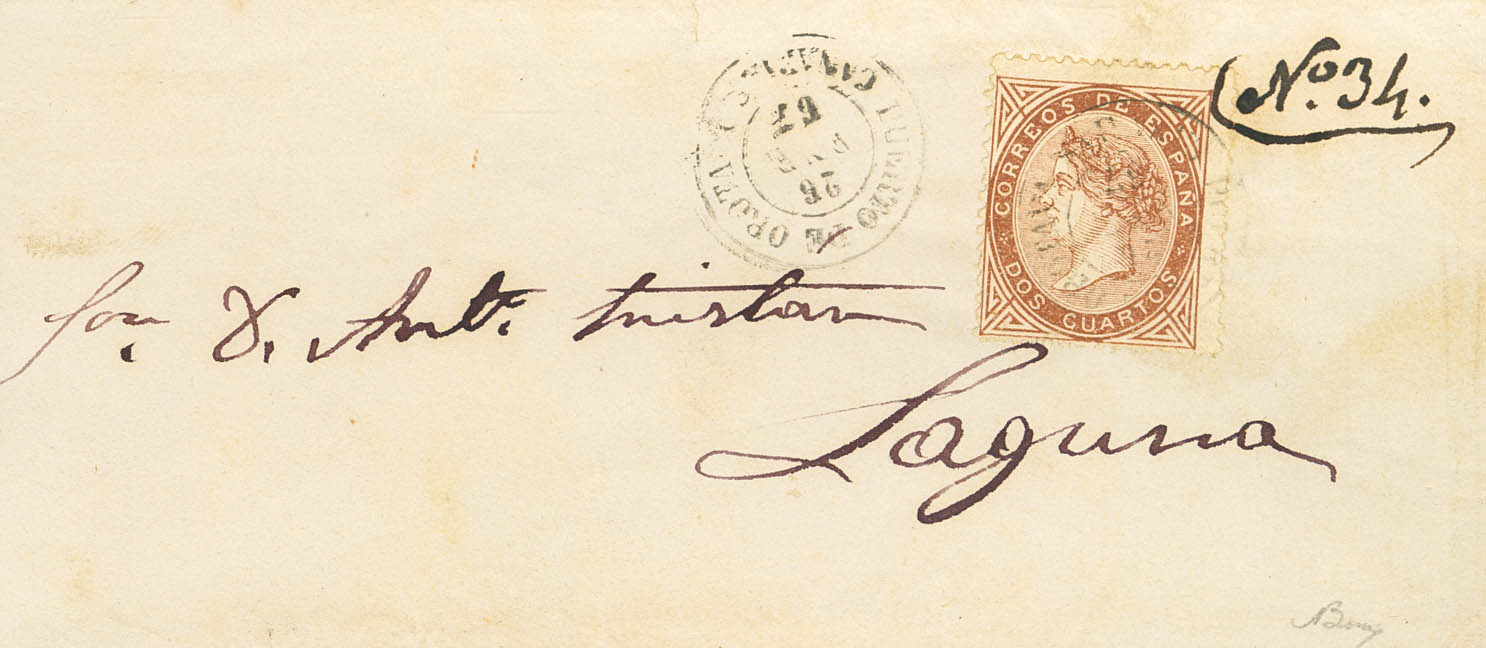 Nº. 34.
PUERTO DE OROTAVA
CANARIAS
26
67
CORREOS DE ESPAÑA
DOS CUARTOS
D. Antº. Tristan
Laguna